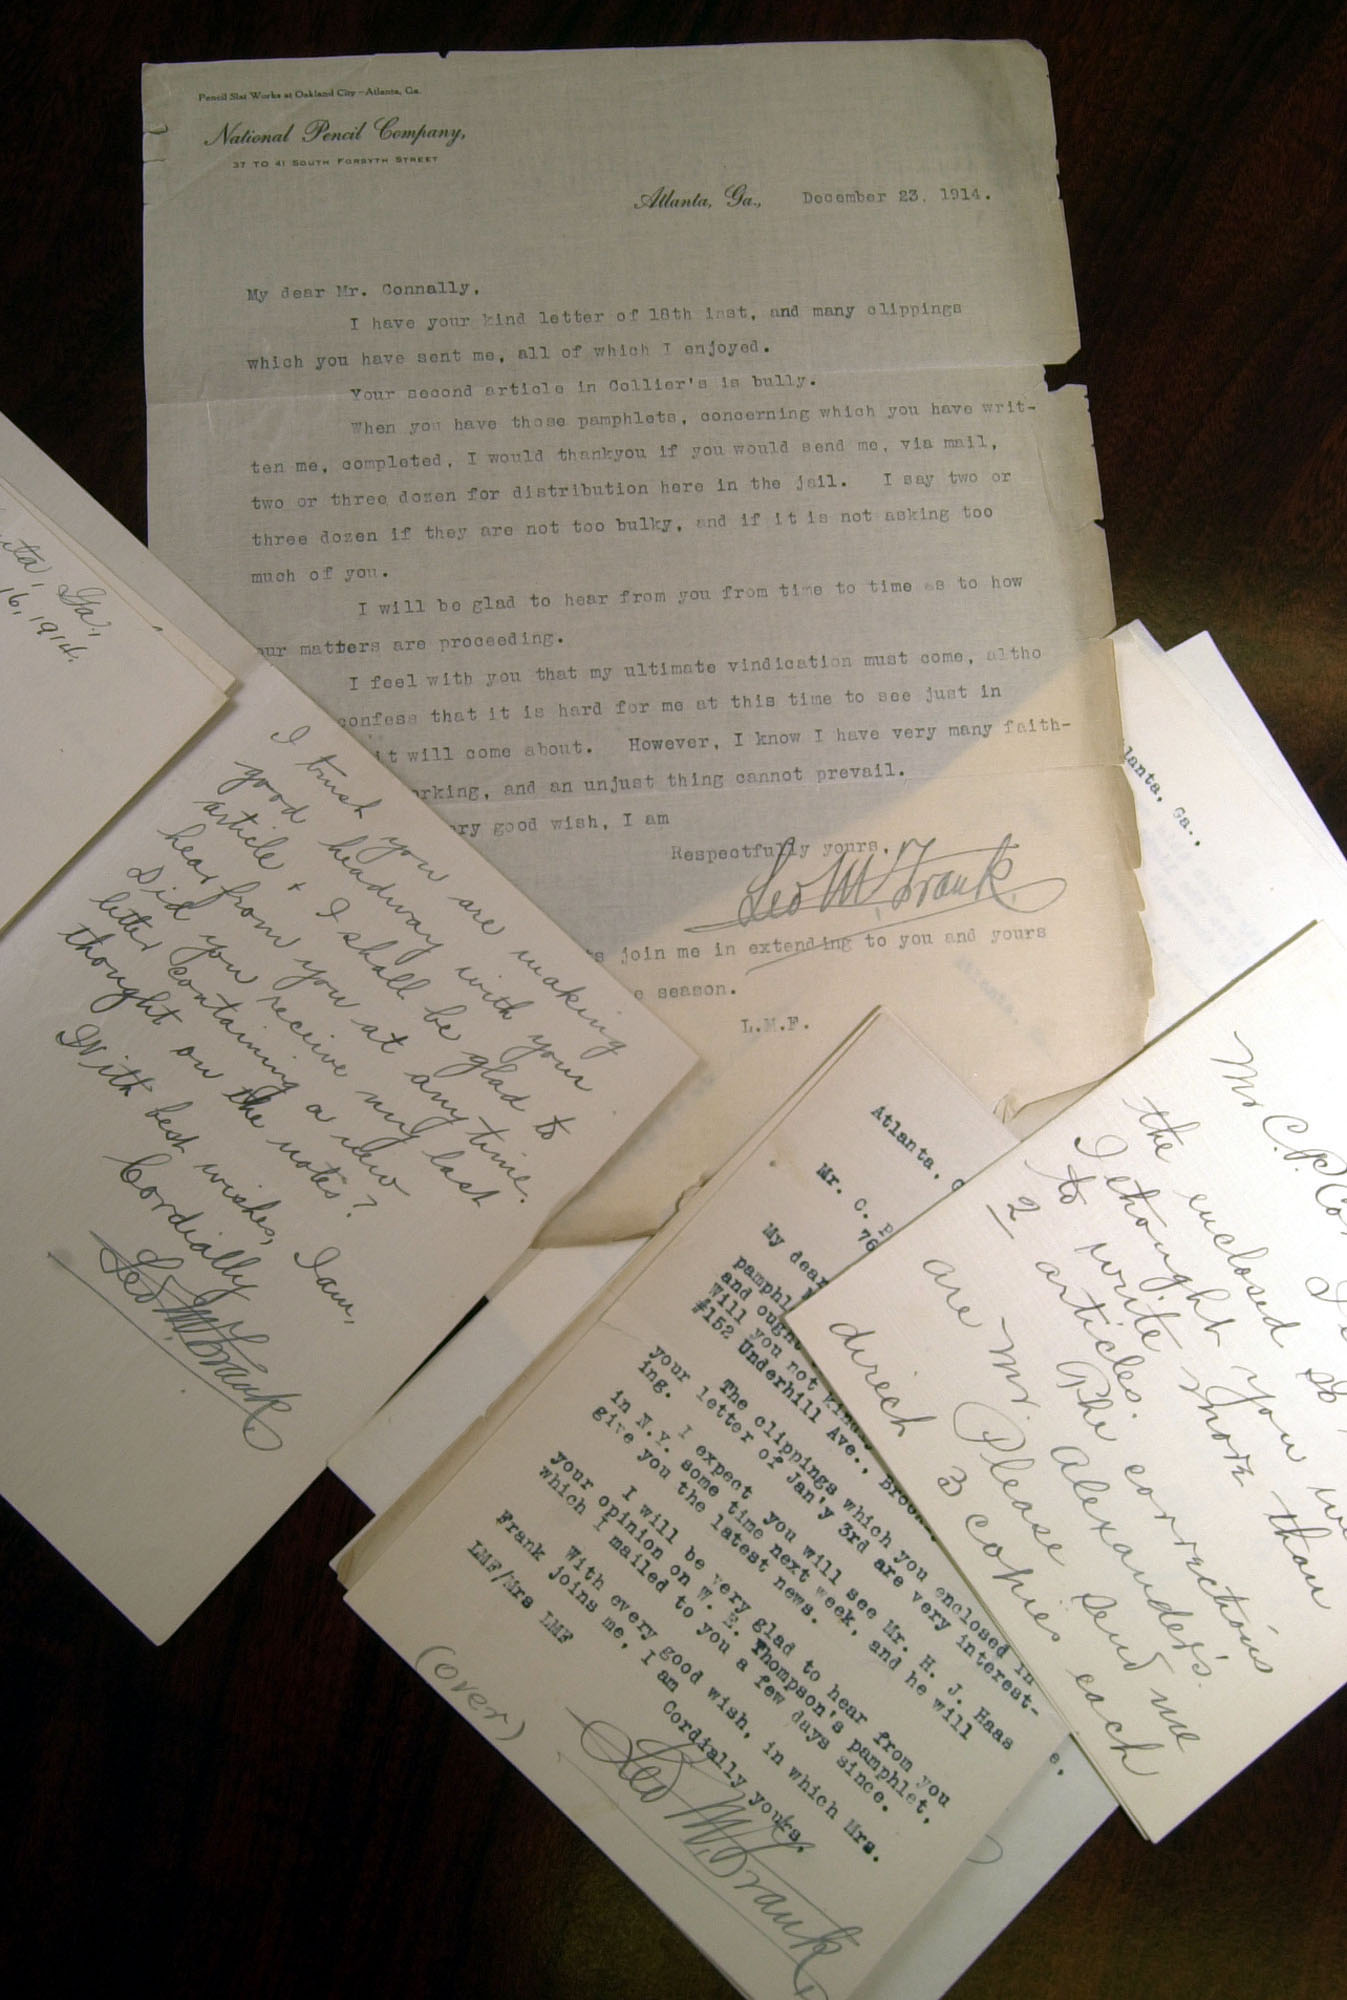 Pencil Slat Works at Oakland City-Atlanta, Ga.
National Pencil Company,
37 TO 41 SOUTH FORSYTH STREET
Atlanta, Ga., December 23, 1914.
My dear Mr. Connally,
I have your kind letter of 18th inst, and many clippings
which you have sent me, all of which I enjoyed.
Your second article in Collier's is bully.
When you have those pamphlets, concerning which you have writ-
ten me, completed, I would thankyou if you would send me, via mail,
two or three dozen for distribution here in the jail. I say two or
three dozen if they are not too bulky, and if it is not asking too
much of you.
I will be glad to hear from you from time to time as to how
our matters are proceeding.
I feel with you that my ultimate vindication must come, altho
confess that it is hard for me at this time to see just in
it will come about. However, I know I have very many faith-
rking, and an unjust thing cannot prevail.
ery good wish, I am
Respectfully yours,
Leo M. Frank
s join me in extending to you and yours
e season.
L.M.F.
nta, Ga.,
16, 1914.
I trust you are making
good headway with your
article & I shall be glad to
hear from you at any time.
Did you receive my last
letter containing a new
thought on the notes?
With best wishes, I am,
Cordially
Leo M. Frank
lanta, Ga.,
Atlanta,
Mr. C. P
76
My dear
pamphl
and ought
Will you not kind
#152 Underhill Ave., Broo
The clippings which you enclosed in
your letter of Jan'y 3rd are very interest-
ing.
I expect you will see Mr. H. J. Haas
in N.Y. some time next week, and he will
give you the latest news.
I will be very glad to hear from you
your opinion on W. E. Thompson's pamphlet,
which I mailed to you a few days since.
With every good wish, in which Mrs.
Frank joins me, I am
Cordially yours,
LMF/Mrs LMF
Leo M. Frank
(over)
e.
Mr C.P. Co
the enclosed so
I thought you
to write more than
2 articles. The corrections
are Mr. Alexander's.
Please send me
direct 3 copies each